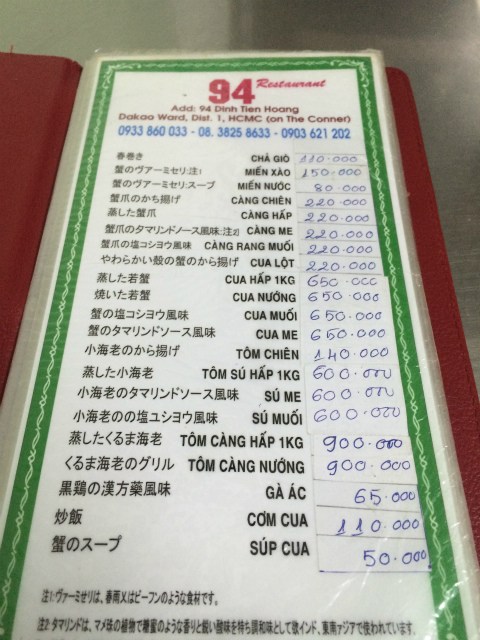 94 Restaurant
Add: 94 Dinh Tien Hoang
Dakao Ward, Dist. 1, HCMC (on The Conner)
0933 860 033 - 08. 3825 8633 - 0903 621 202
春巻き CHẢ GIÒ 110.000
蟹のヴァーミセリ:注1 MIẾN XÀO 150.000
蟹のヴァーミセリ:スープ MIẾN NƯỚC 80.000
蟹爪のから揚げ CÀNG CHIÊN 220.000
蒸した蟹爪 CÀNG HẤP 220.000
蟹爪のタマリンドソース風味:注2) CÀNG ME 220.000
蟹爪の塩コショウ風味 CÀNG RANG MUỐI 220.000
やわらかい殻の蟹のから揚げ CUA LỘT 220.000
蒸した若蟹 CUA HẤP 1KG 650.000
焼いた若蟹 CUA NƯỚNG 650.000
蟹の塩コショウ風味 CUA MUỐI 650.000
蟹のタマリンドソース風味 CUA ME 650.000
小海老のから揚げ TÔM CHIÊN 140.000
蒸した小海老 TÔM SÚ HẤP 1KG 600.000
小海老のタマリンドソース風味 SÚ ME 600.000
小海老のの塩ユシヨウ風味 SÚ MUỐI 600.000
蒸したくるま海老 TÔM CÀNG HẤP 1KG 900.000
くるま海老のグリル TÔM CÀNG NƯỚNG 900.000
黒鶏の漢方藥風味 GÀ ÁC 65.000
炒飯 CƠM CUA 110.000
蟹のスープ SÚP CUA 50.000
注1:ヴァーミせリは、春雨乂はビーフンのような食材です。
注2:タマリンドは、マメ味の植物で糖蜜のような香りと鋭い酸味を持ち調和味として欧インド、東南ァジアで使われています.